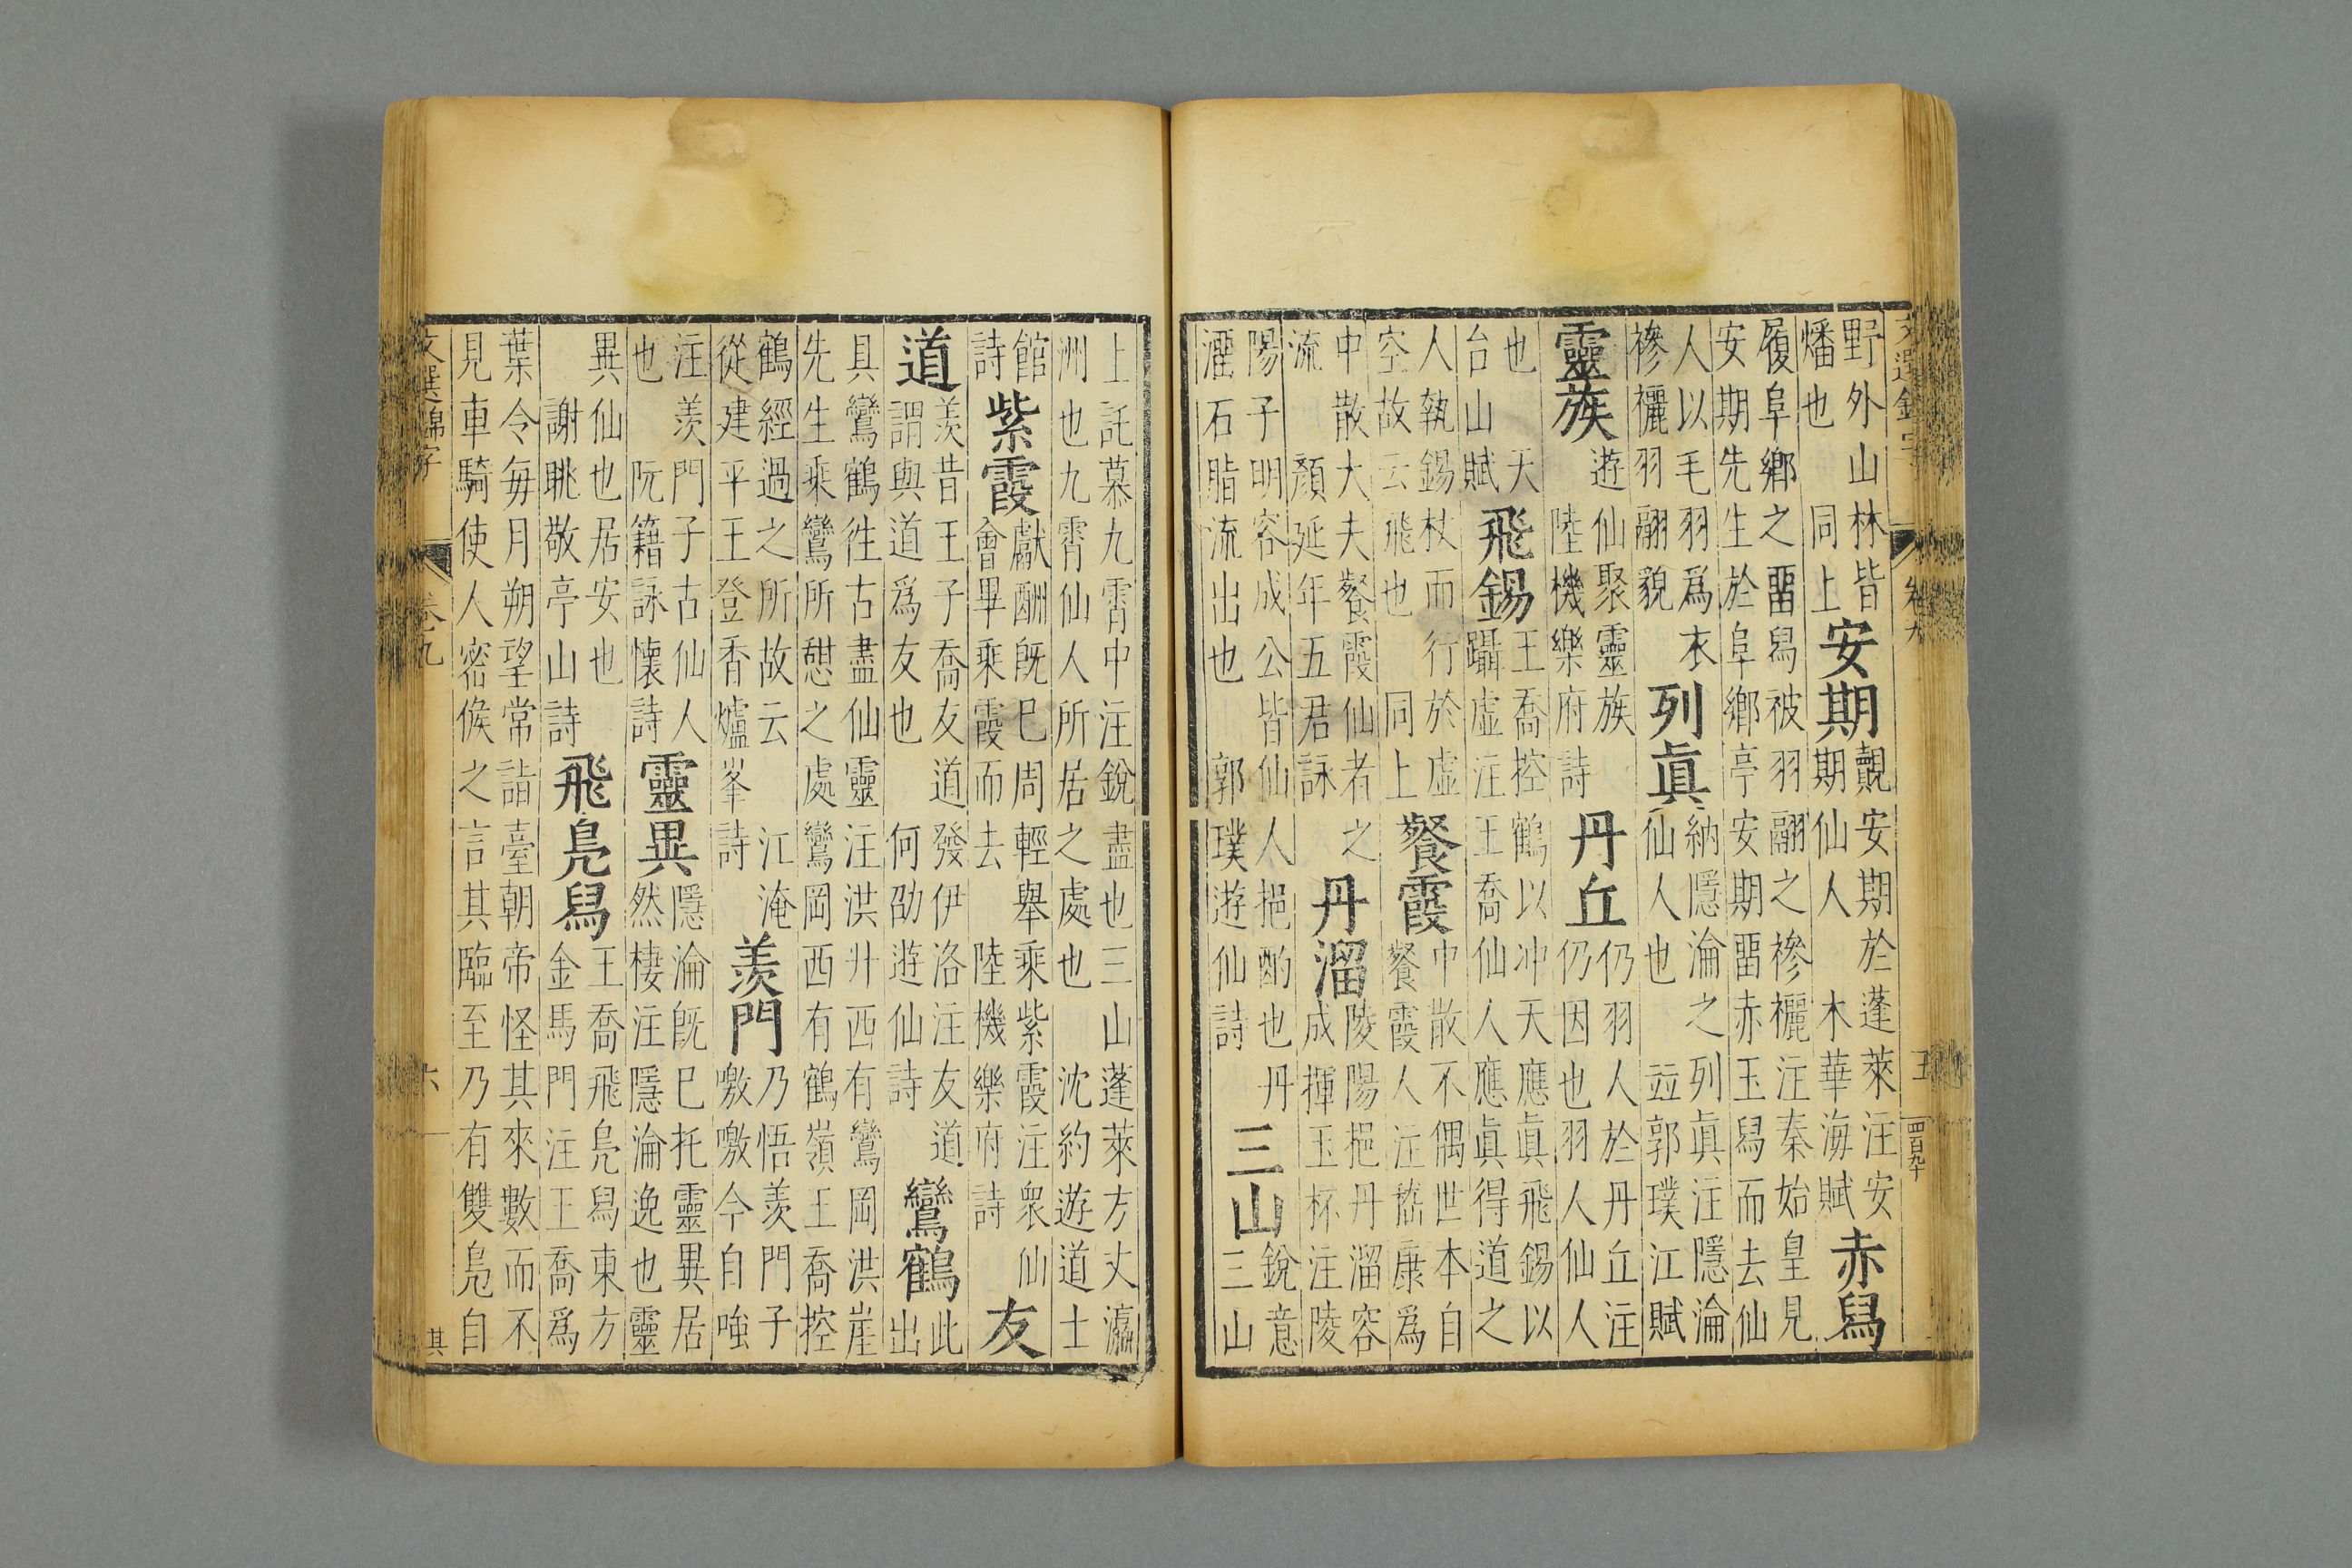 文選錦字 卷九 五 四百九十
野外山林皆
燔也 同上
安期
覿安期於蓬萊注安
期仙人 木華海賦
赤舄
履阜鄉之畱舄被羽翮之襂襹注秦始皇見
安期先生於阜鄉亭安期畱赤玉舄而去仙
人以毛羽爲衣
襂襹羽翮貌
列眞
納隱淪之列眞注隱淪
仙人也 竝郭璞江賦
靈族
遊仙聚靈族
陸機樂府詩
丹丘
仍羽人於丹丘注
仍因也羽人仙人
也 天
台山賦
飛錫
王喬控鶴以冲天應眞飛錫以
躡虛注王喬仙人應眞得道之
人執錫杖而行於虛
空故云飛也 同上
餐霞
中散不偶世本自
餐霞人注嵇康爲
中散大夫餐霞仙者之
流 顏延年五君詠
丹溜
陵陽挹丹溜容
成揮玉杯注陵
陽子明容成公皆仙人挹酌也丹
灑石脂流出也 郭璞遊仙詩
三山
銳意
三山
上託慕九霄中注銳盡也三山蓬萊方丈瀛
洲也九霄仙人所居之處也 沈約遊道士
館
詩
紫霞
獻酬旣巳周輕舉乘紫霞注衆仙
會畢乘霞而去 陸機樂府詩
友
道
羨昔王子喬友道發伊洛注友道
謂與道爲友也 何劭遊仙詩
鸞鶴
此
出
具鸞鶴徃古盡仙靈注洪井西有鸞岡洪崖
先生乘鸞所憇之處鸞岡西有鶴嶺王喬控
鶴經過之所故云 江淹
從建平王登香爐峯詩
羨門
乃悟羨門子
噭噭今自嗤
注羨門子古仙人
也 阮籍詠懷詩
靈異
隱淪旣巳托靈異居
然棲注隱淪逸也靈
異仙也居安也
謝眺敬亭山詩
飛鳧舄
王喬飛鳧舄東方
金馬門注王喬爲
葉令每月朔望常詣臺朝帝怪其來數而不
見車騎使人密候之言其臨至乃有雙鳧自
文選錦字 卷九 六 其